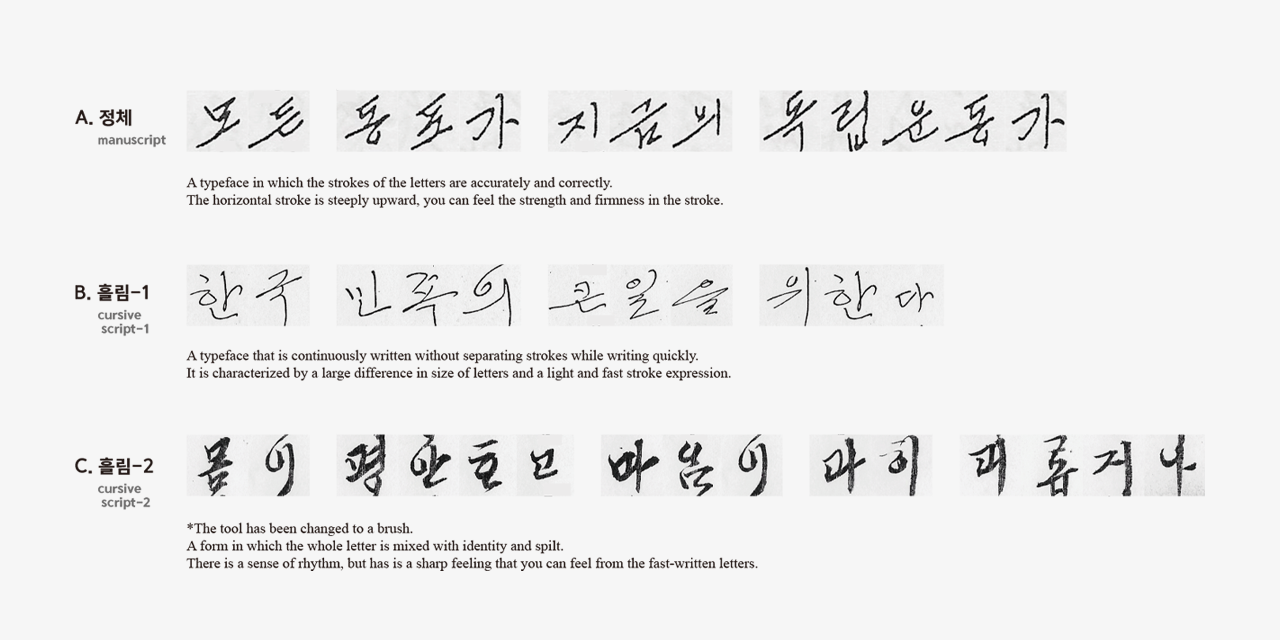 A. 정체
manuscript
모든 동포가 지금의 독립운동가
A typeface in which the strokes of the letters are accurately and correctly.
The horizontal stroke is steeply upward, you can feel the strength and firmness in the stroke.
B. 흘림-1
cursive
script-1
한국 민족의 큰일을 위한다
A typeface that is continuously written without separating strokes while writing quickly.
It is characterized by a large difference in size of letters and a light and fast stroke expression.
C. 흘림-2
cursive
script-2
몸이 평안호고 마음이 과히 괴롭거나
*The tool has been changed to a brush.
A form in which the whole letter is mixed with identity and spilt.
There is a sense of rhythm, but has is a sharp feeling that you can feel from the fast-written letters.